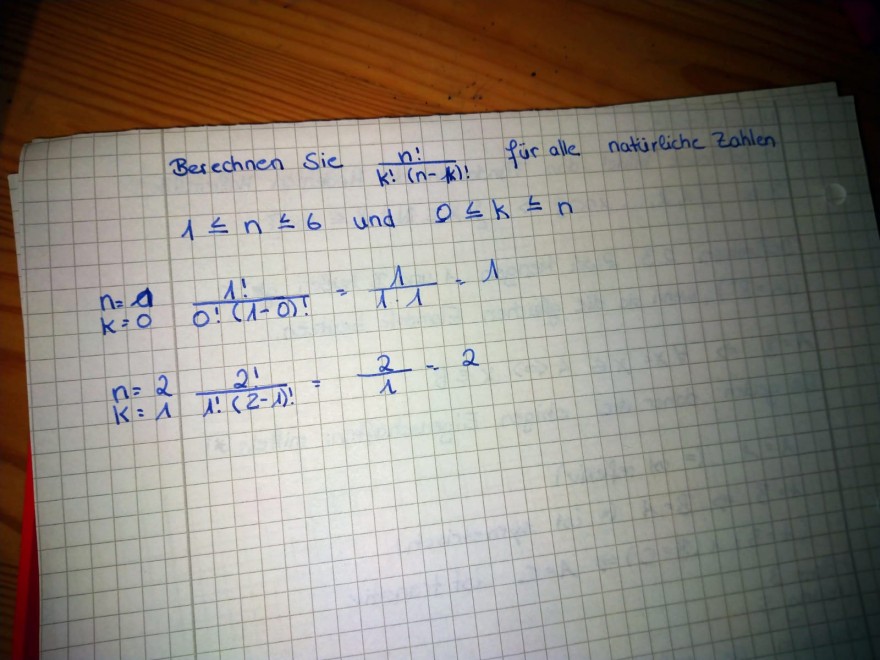 Berechnen Sie n! / k! (n-k)! für alle natürliche Zahlen
1 ≤ n ≤ 6 und 0 ≤ k ≤ n
n=1 1! / 0! (1-0)! = 1 / 1·1 = 1
k=0
n=2 2! / 1! (2-1)! = 2 / 1 = 2
k=1